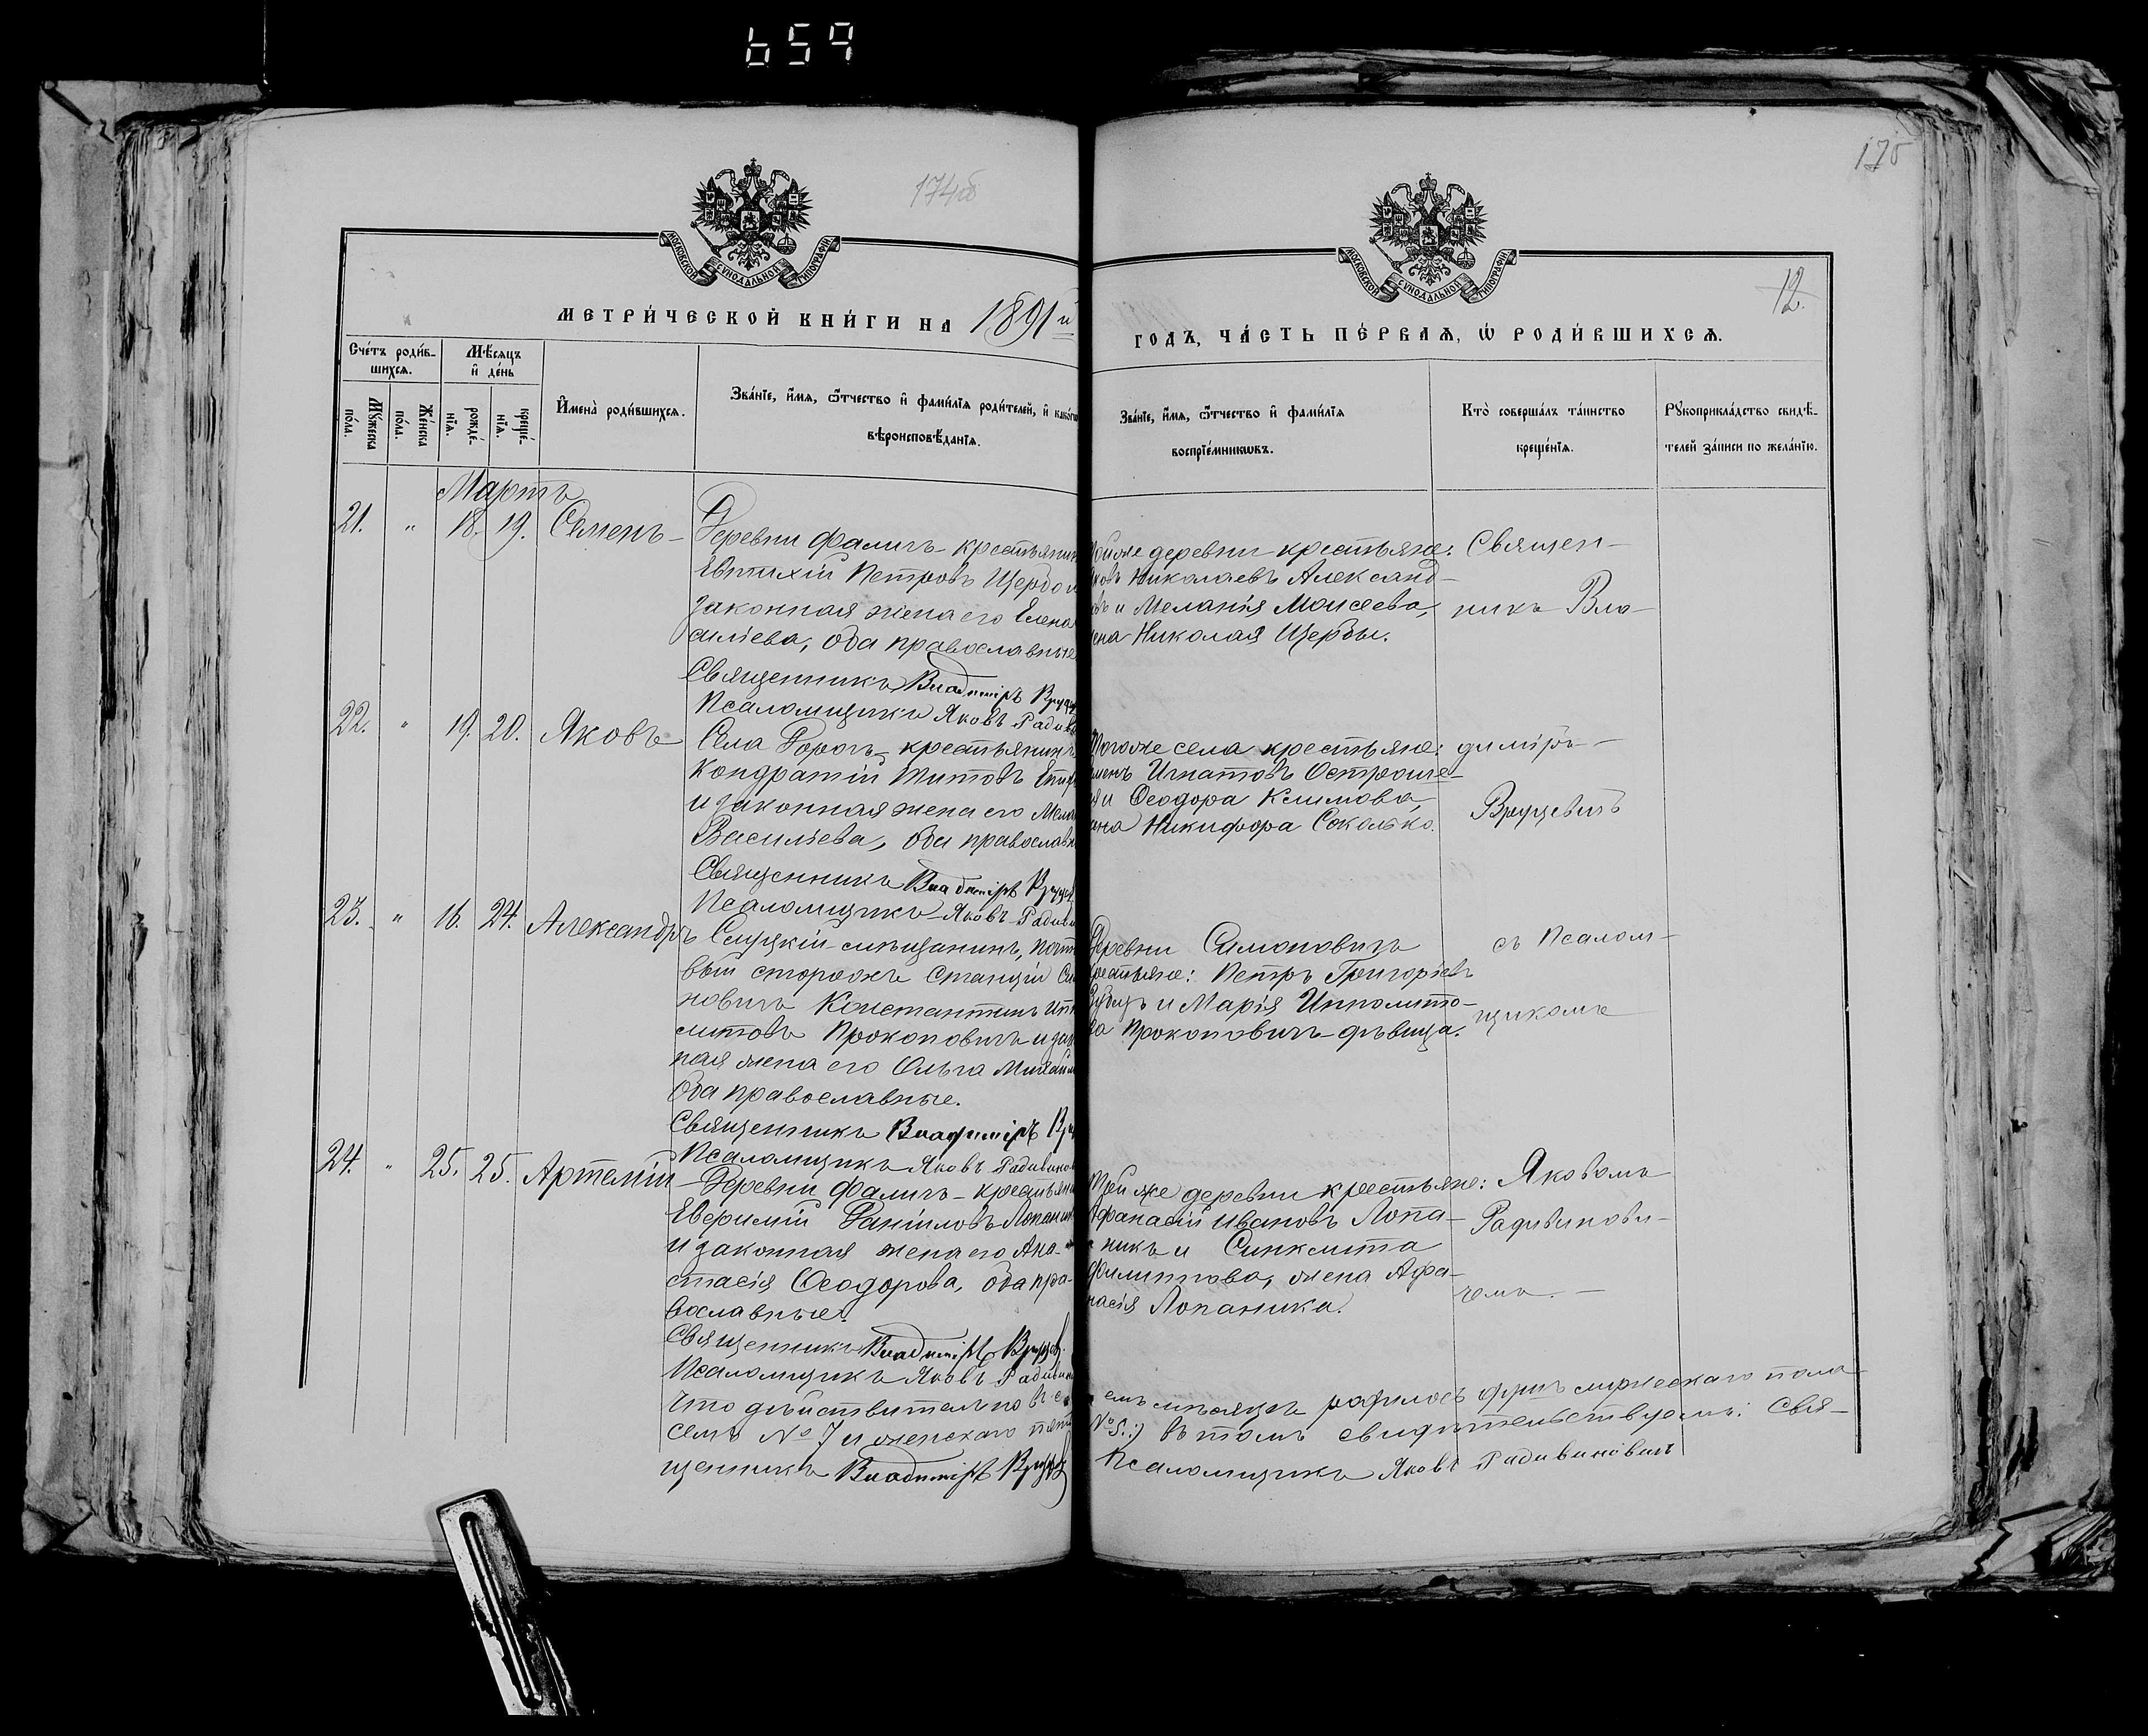 659
174об
175
МОСКОВСКОЙ СѴНОДАЛЬНОЙ ТИПОГРАФІИ
МОСКОВСКОЙ СѴНОДАЛЬНОЙ ТИПОГРАФІИ
12.
МЕТРИ́ЧЕСКОЙ КНИ́ГИ НА 1891й
ГОДЪ, ЧА́СТЬ ПЕ́РВАѦ, Ѡ҆ РОДИ́ВШИХСѦ.
Сче́тъ роди́в-
шихсѧ.
Мѣ́сѧцъ
и҆ де́нь
Мꙋ́жеска по́ла.
Же́нска по́ла.
рожде́-нїѧ.
креще́-нїѧ.
И҆мена̀ роди́вшихсѧ.
Зва́нїе, и҆́мѧ, ѻ҆́тчество и҆ фами́лїѧ роди́телей, и҆ како́гѡ
вѣроисповѣ́данїѧ.
Зва́нїе, и҆́мѧ, ѻ҆́тчество и҆ фами́лїѧ
воспрїе́мникѡвъ.
Кто̀ соверша́лъ та́инство
креще́нїѧ.
Рꙋкоприкла́дство свидѣ́-
телей за́писи по жела́нїю.
Мартъ
21. " 18. 19. Семенъ –
Деревни Фаличъ – крестьянин
Евтихій Петровъ Щербо и
законная жена его Елена
сильева, оба православные
Священникъ Владиміръ
Псаломщикъ Яковъ Радиви
той же деревни крестьяне:
Николаевъ Александ–
въ и Меланія Моисеева,
жена Николая Щербы.
Священ–
никъ Вла–
22. " 19. 20. Яковъ
Села Горогъ – крестьянинъ
Кондратій Титовъ
и законная жена его Мела
Васильева, оба православн
Священникъ Владиміръ
Псаломщикъ Яковъ Радиви
Тогоже села крестьяне:
Игнатовъ
и Ѳеодора Климова,
жена Никифора Соколько.
диміръ –
Вруцевичъ
23. " 16. 24. Александръ
Слуцкій мѣщанинъ, почто
вый сторожъ станціи Си
новичъ Константинъ Иппо
литовъ Прокоповичъ и закон
ная жена его Ольга Михайл
оба православные.
Священникъ Владиміръ
Псаломщикъ Яковъ Радивинов
Деревни Симоновичъ
крестьяне: Петръ Григорьевъ
и Марія Ипполито–
ва Прокоповичъ – дѣвица.
съ Псалом–
щикомъ
24. " 25. 25. Артемій
Деревни Фаличъ – крестьяни
Евфимій Даніиловъ Лопаник
и законная жена его Ана–
стасія Ѳеодорова, оба пра–
вославные.
Священникъ Владиміръ
Псаломщикъ Яковъ Радивин
Той же деревни крестьяне:
Афанасій Ивановъ Лопа–
никъ и Синклита
Филиппова, жена Афа–
насія Лопаника.
Яковомъ
Радивинови–
чемъ. –
Что дѣйствительно въ се емъ мѣсяцѣ родилось душъ мужескаго пола
семь № 7 и женскаго пять № 5.) въ томъ свидѣтельствуемъ: Свя–
щенникъ Владиміръ Псаломщикъ Яковъ Радивиновичъ